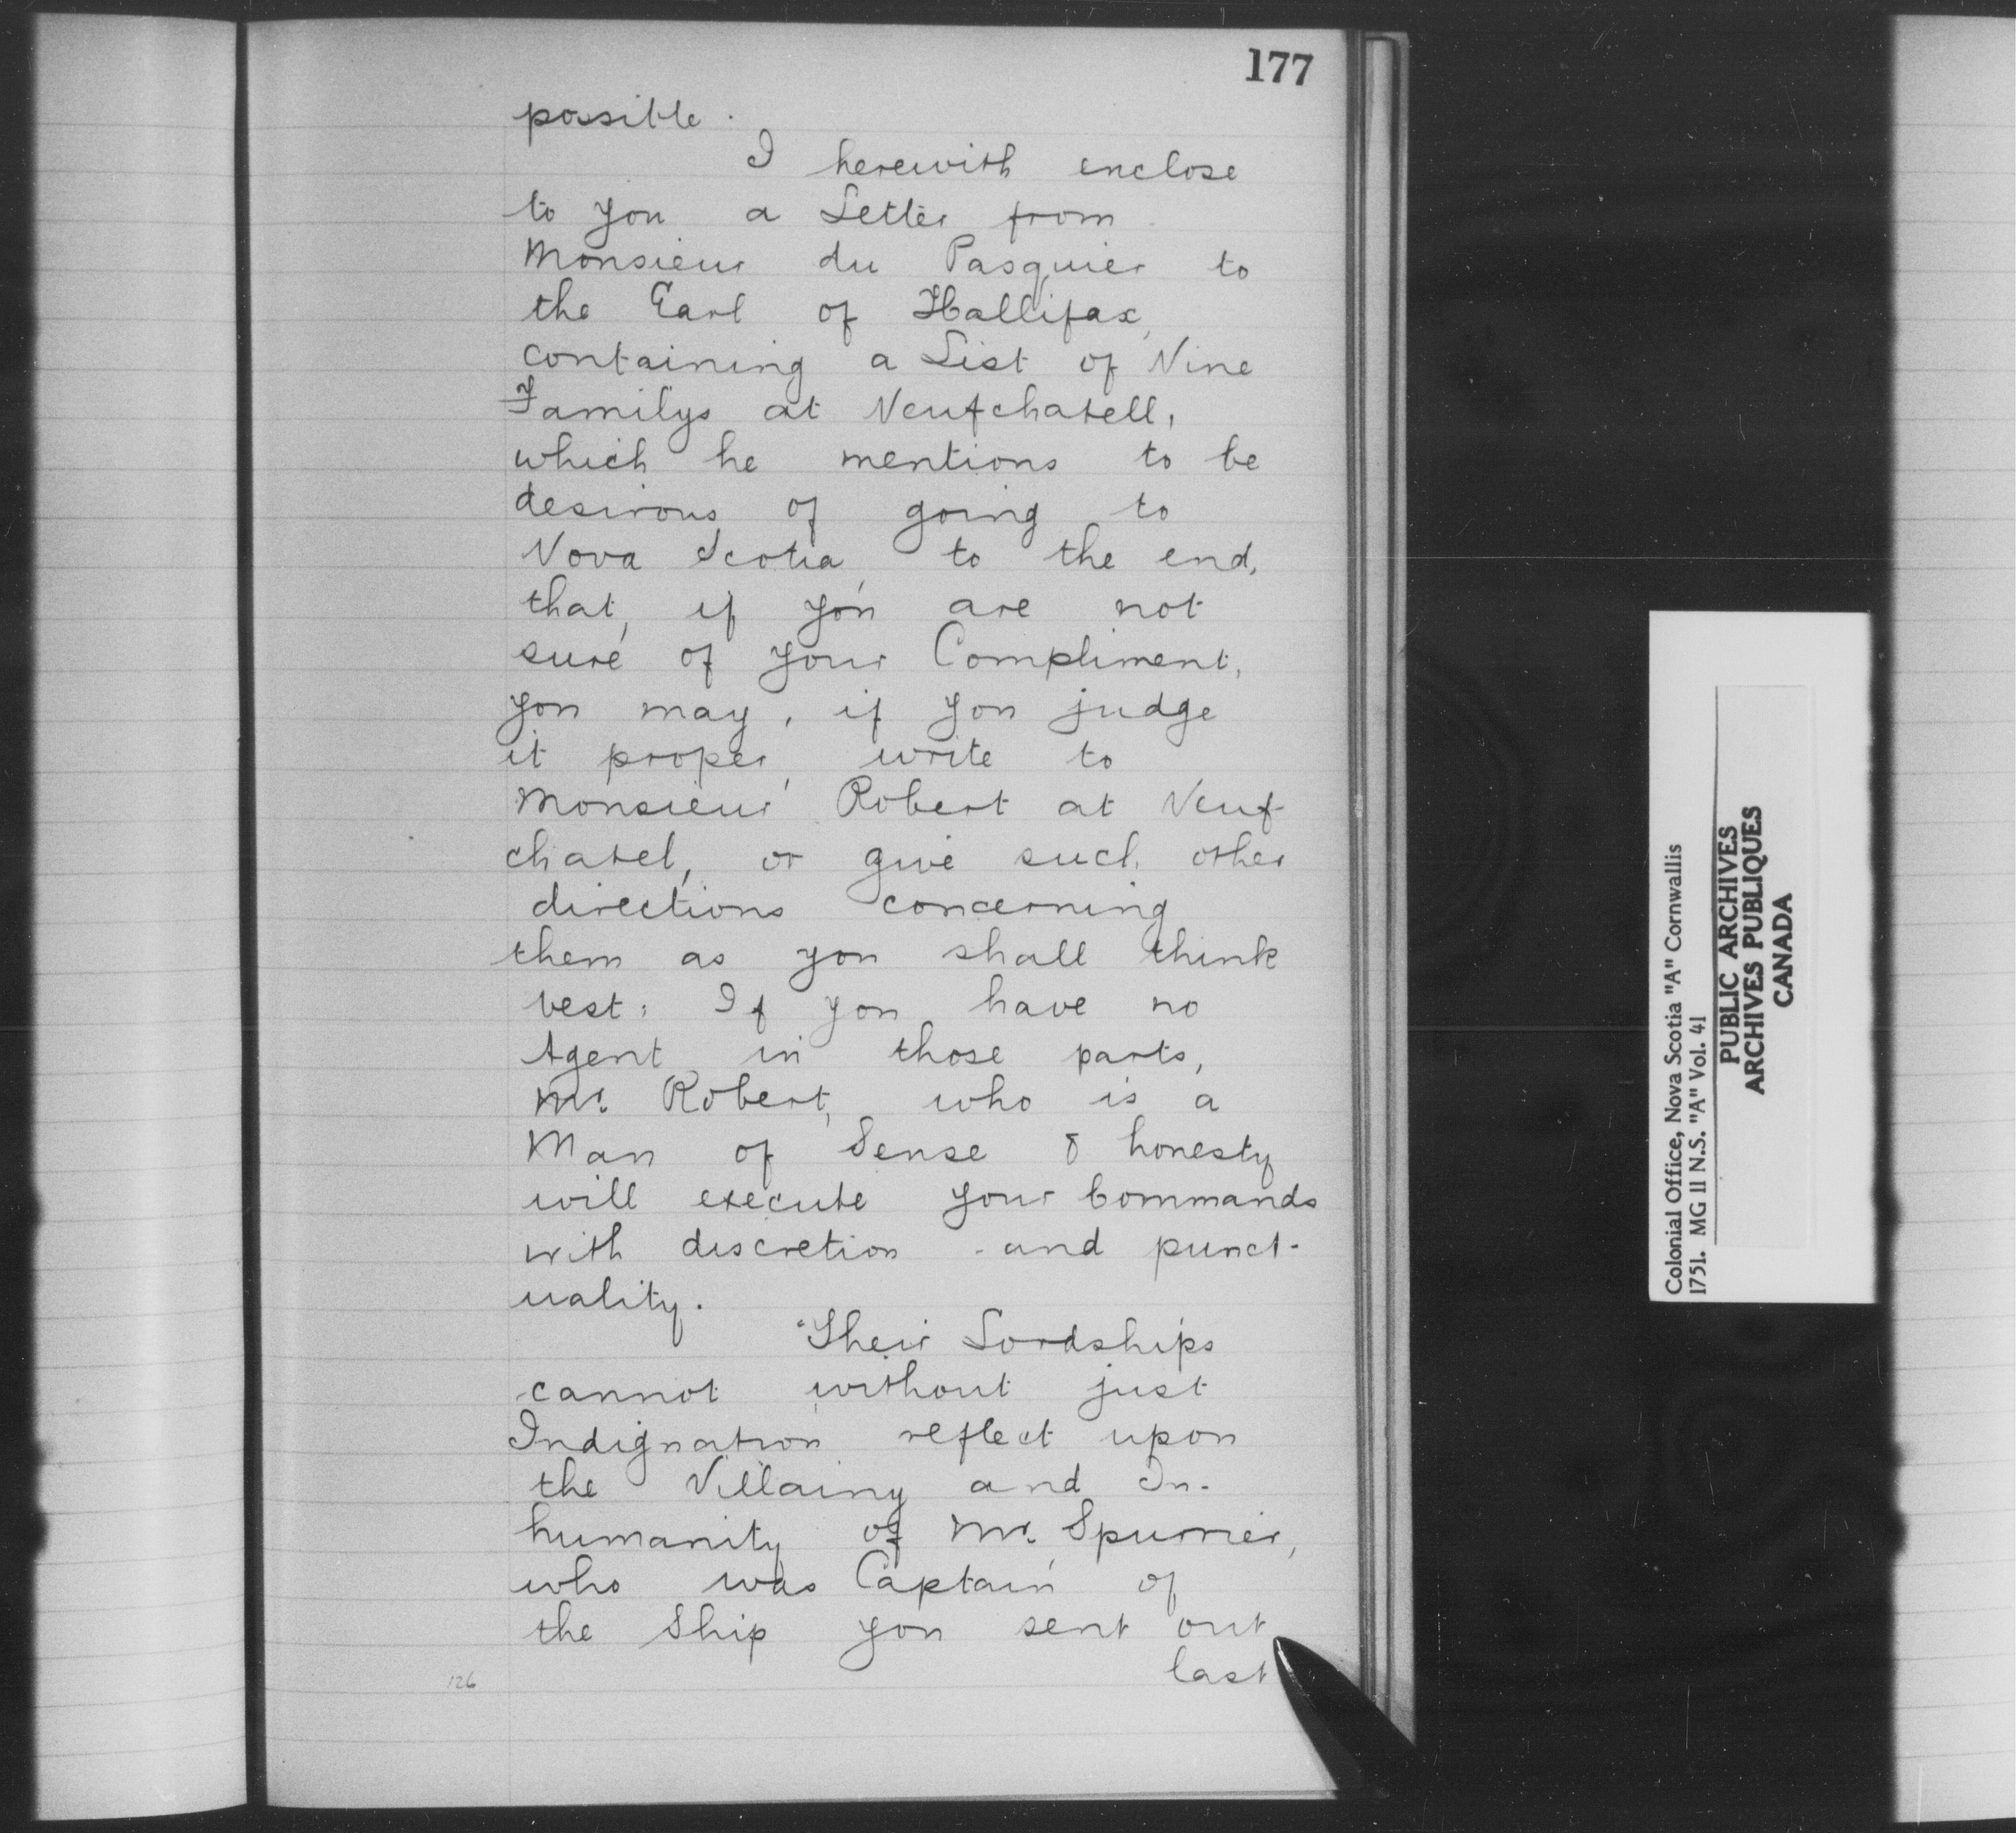 177
possible.
I herewith enclose
to you a Letter from
Monsieur du Pasquier to
the Earl of Hallifax,
containing a List of Nine
Familys at Neufchatell,
which he mentions to be
desirous of going to
Nova Scotia, to the end,
that, if you are not
sure of your Compliment,
you may, if you judge
it proper, write to
Monsieur Robert at Neuf-
chatel, or give such other
directions concerning
them as you shall think
best: If you have no
Agent in those parts,
Mr. Robert, who is a
Man of Sense & honesty
will execute your Commands
with discretion and punct-
uality.
Their Lordships
cannot without just
Indignation reflect upon
the Villainy and In-
humanity of Mr. Spurrier,
who was Captain of
the Ship you sent out
last
126
Colonial Office, Nova Scotia "A" Cornwallis
1751. MG 11 N.S. "A" Vol. 41
PUBLIC ARCHIVES
ARCHIVES PUBLIQUES
CANADA